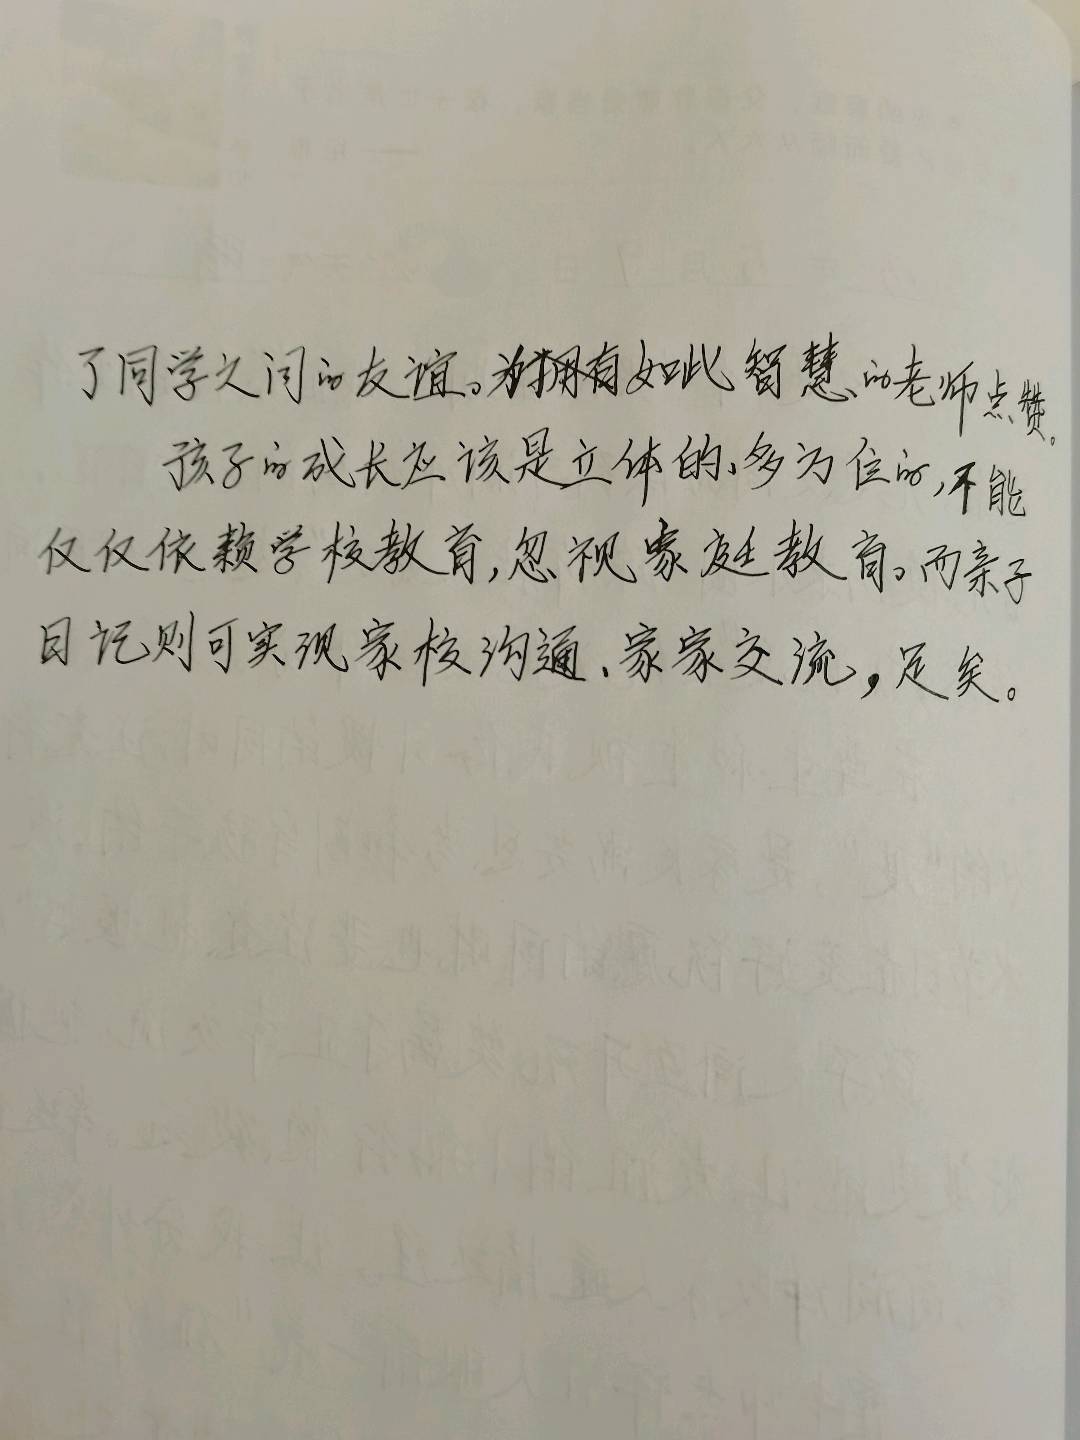 了同学之间的友谊。为拥有如此智慧的老师点赞。
孩子的成长应该是立体的、多为位的，不能
仅仅依赖学校教育，忽视家庭教育。而亲子
日记则可实现家校沟通、家家交流，足矣。